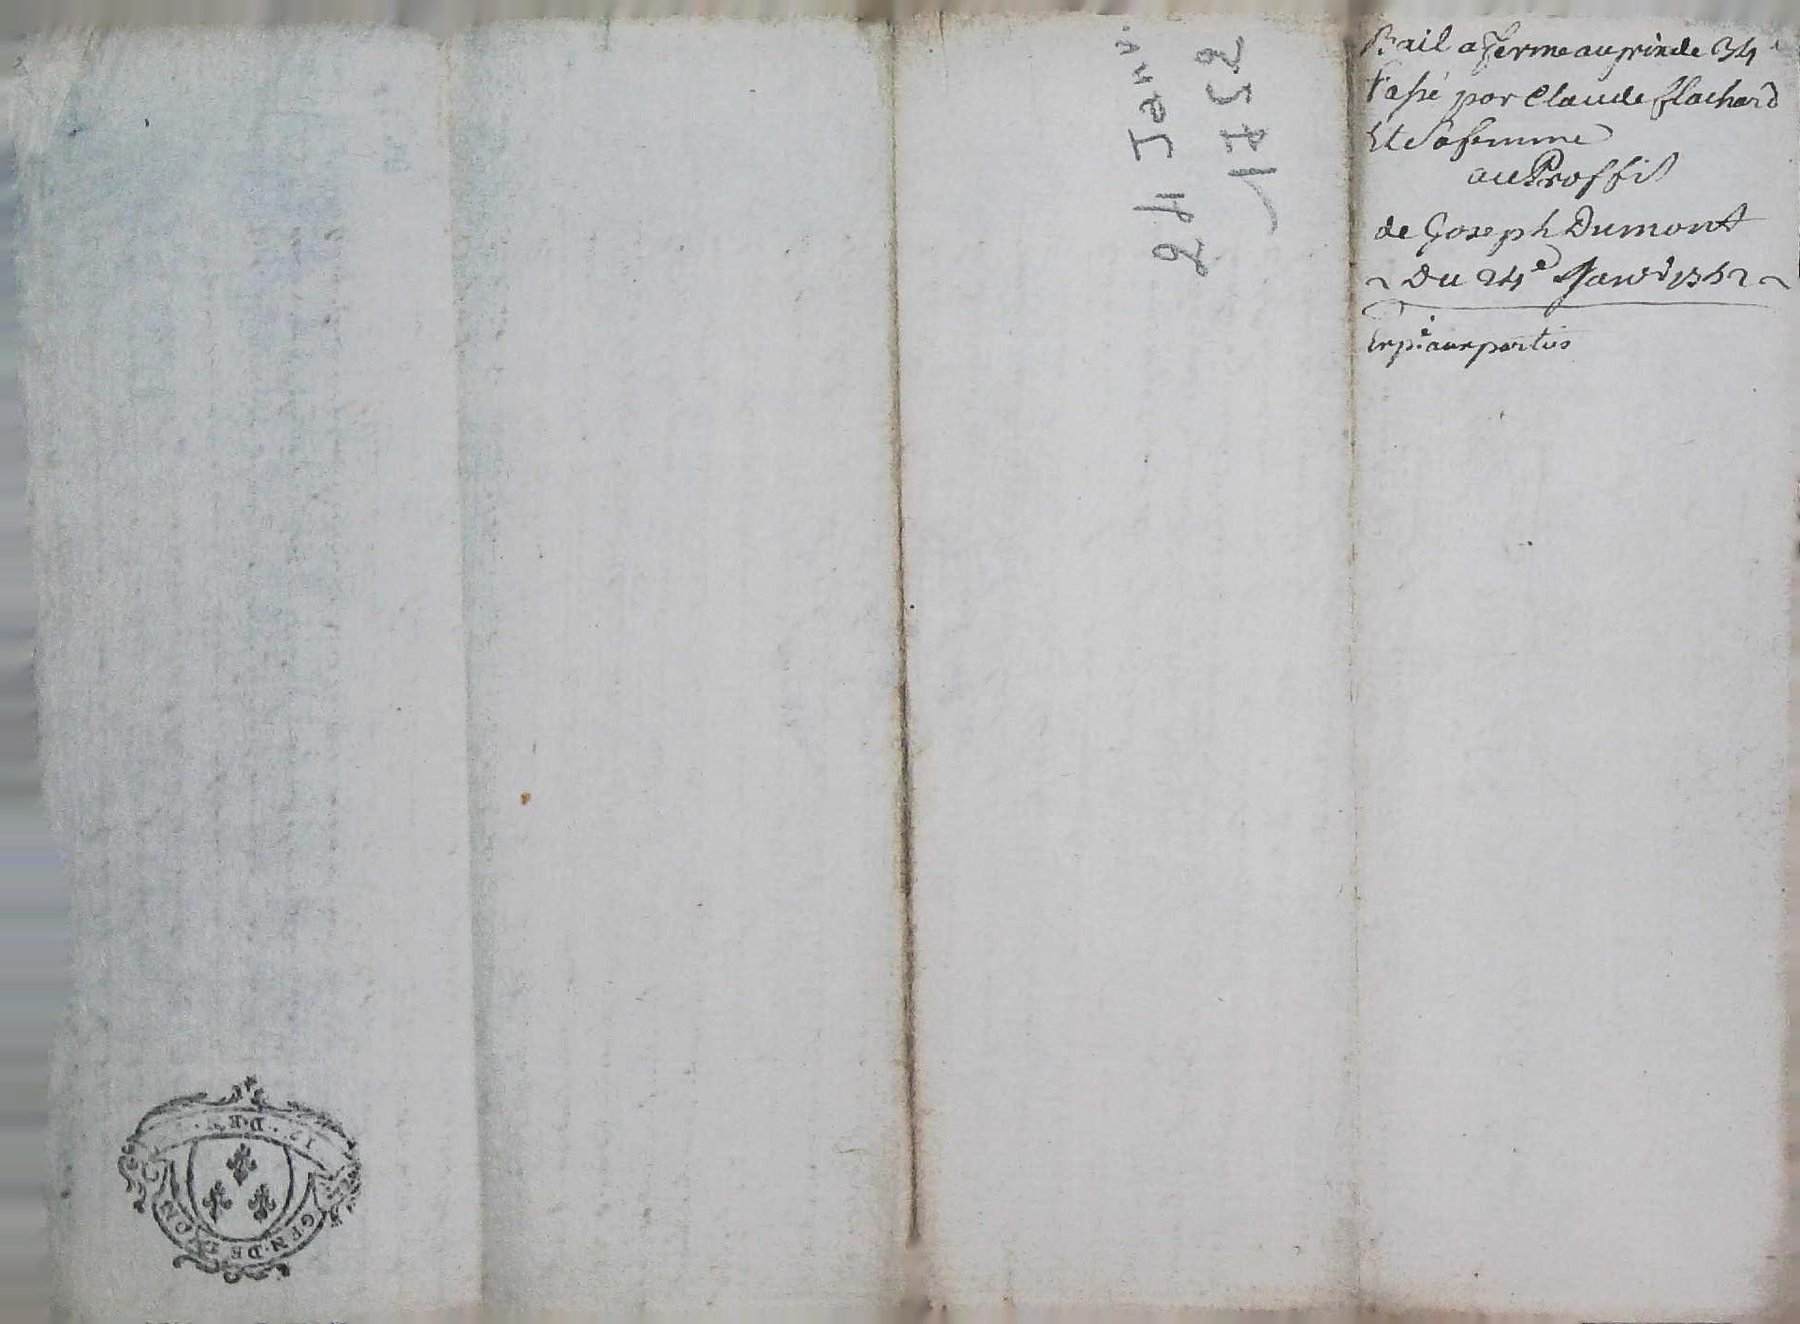 Bail a ferme au prix de 34
Passé par Claude flachard
Et Sa femme
au Proffit
de Joseph Dumont
Du 24e Janvr 1752
Expé aux parties
26 Janv.
GEN·DE LYON